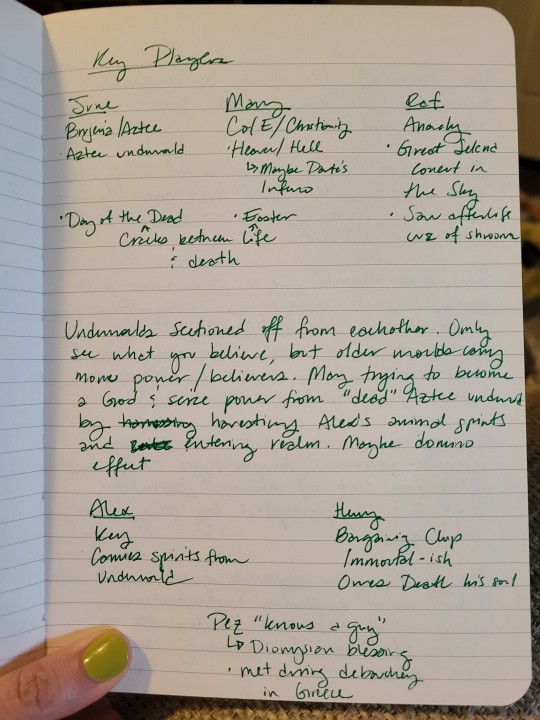 Key Players
June
Brujeria/Aztec
· Aztec underworld
· Day of the Dead
Mary
Cof E/Christianity
· Heaven/Hell
↳ Maybe Dante's
Inferno
· Easter
Cracks between life
& death
Raf
Anarchy
· Great
concert in
the Sky
· Saw afterlife
of shrooms
Underworlds sectioned off from eachother. Only
see what you believe, but older worlds carry
more power/believers. Mary trying to become
a God & seize power from "dead" Aztec underworld
by harvesting Alex's animal spirits
and entering realm. Maybe domino
effect
Alex
Key
Carries spirits from
Underworld
Henry
Bargaining Chip
Immortal-ish
Owes Death his soul
Pez "knows a guy"
↳ Dionysian blessing
· met during debauchery
in Greece